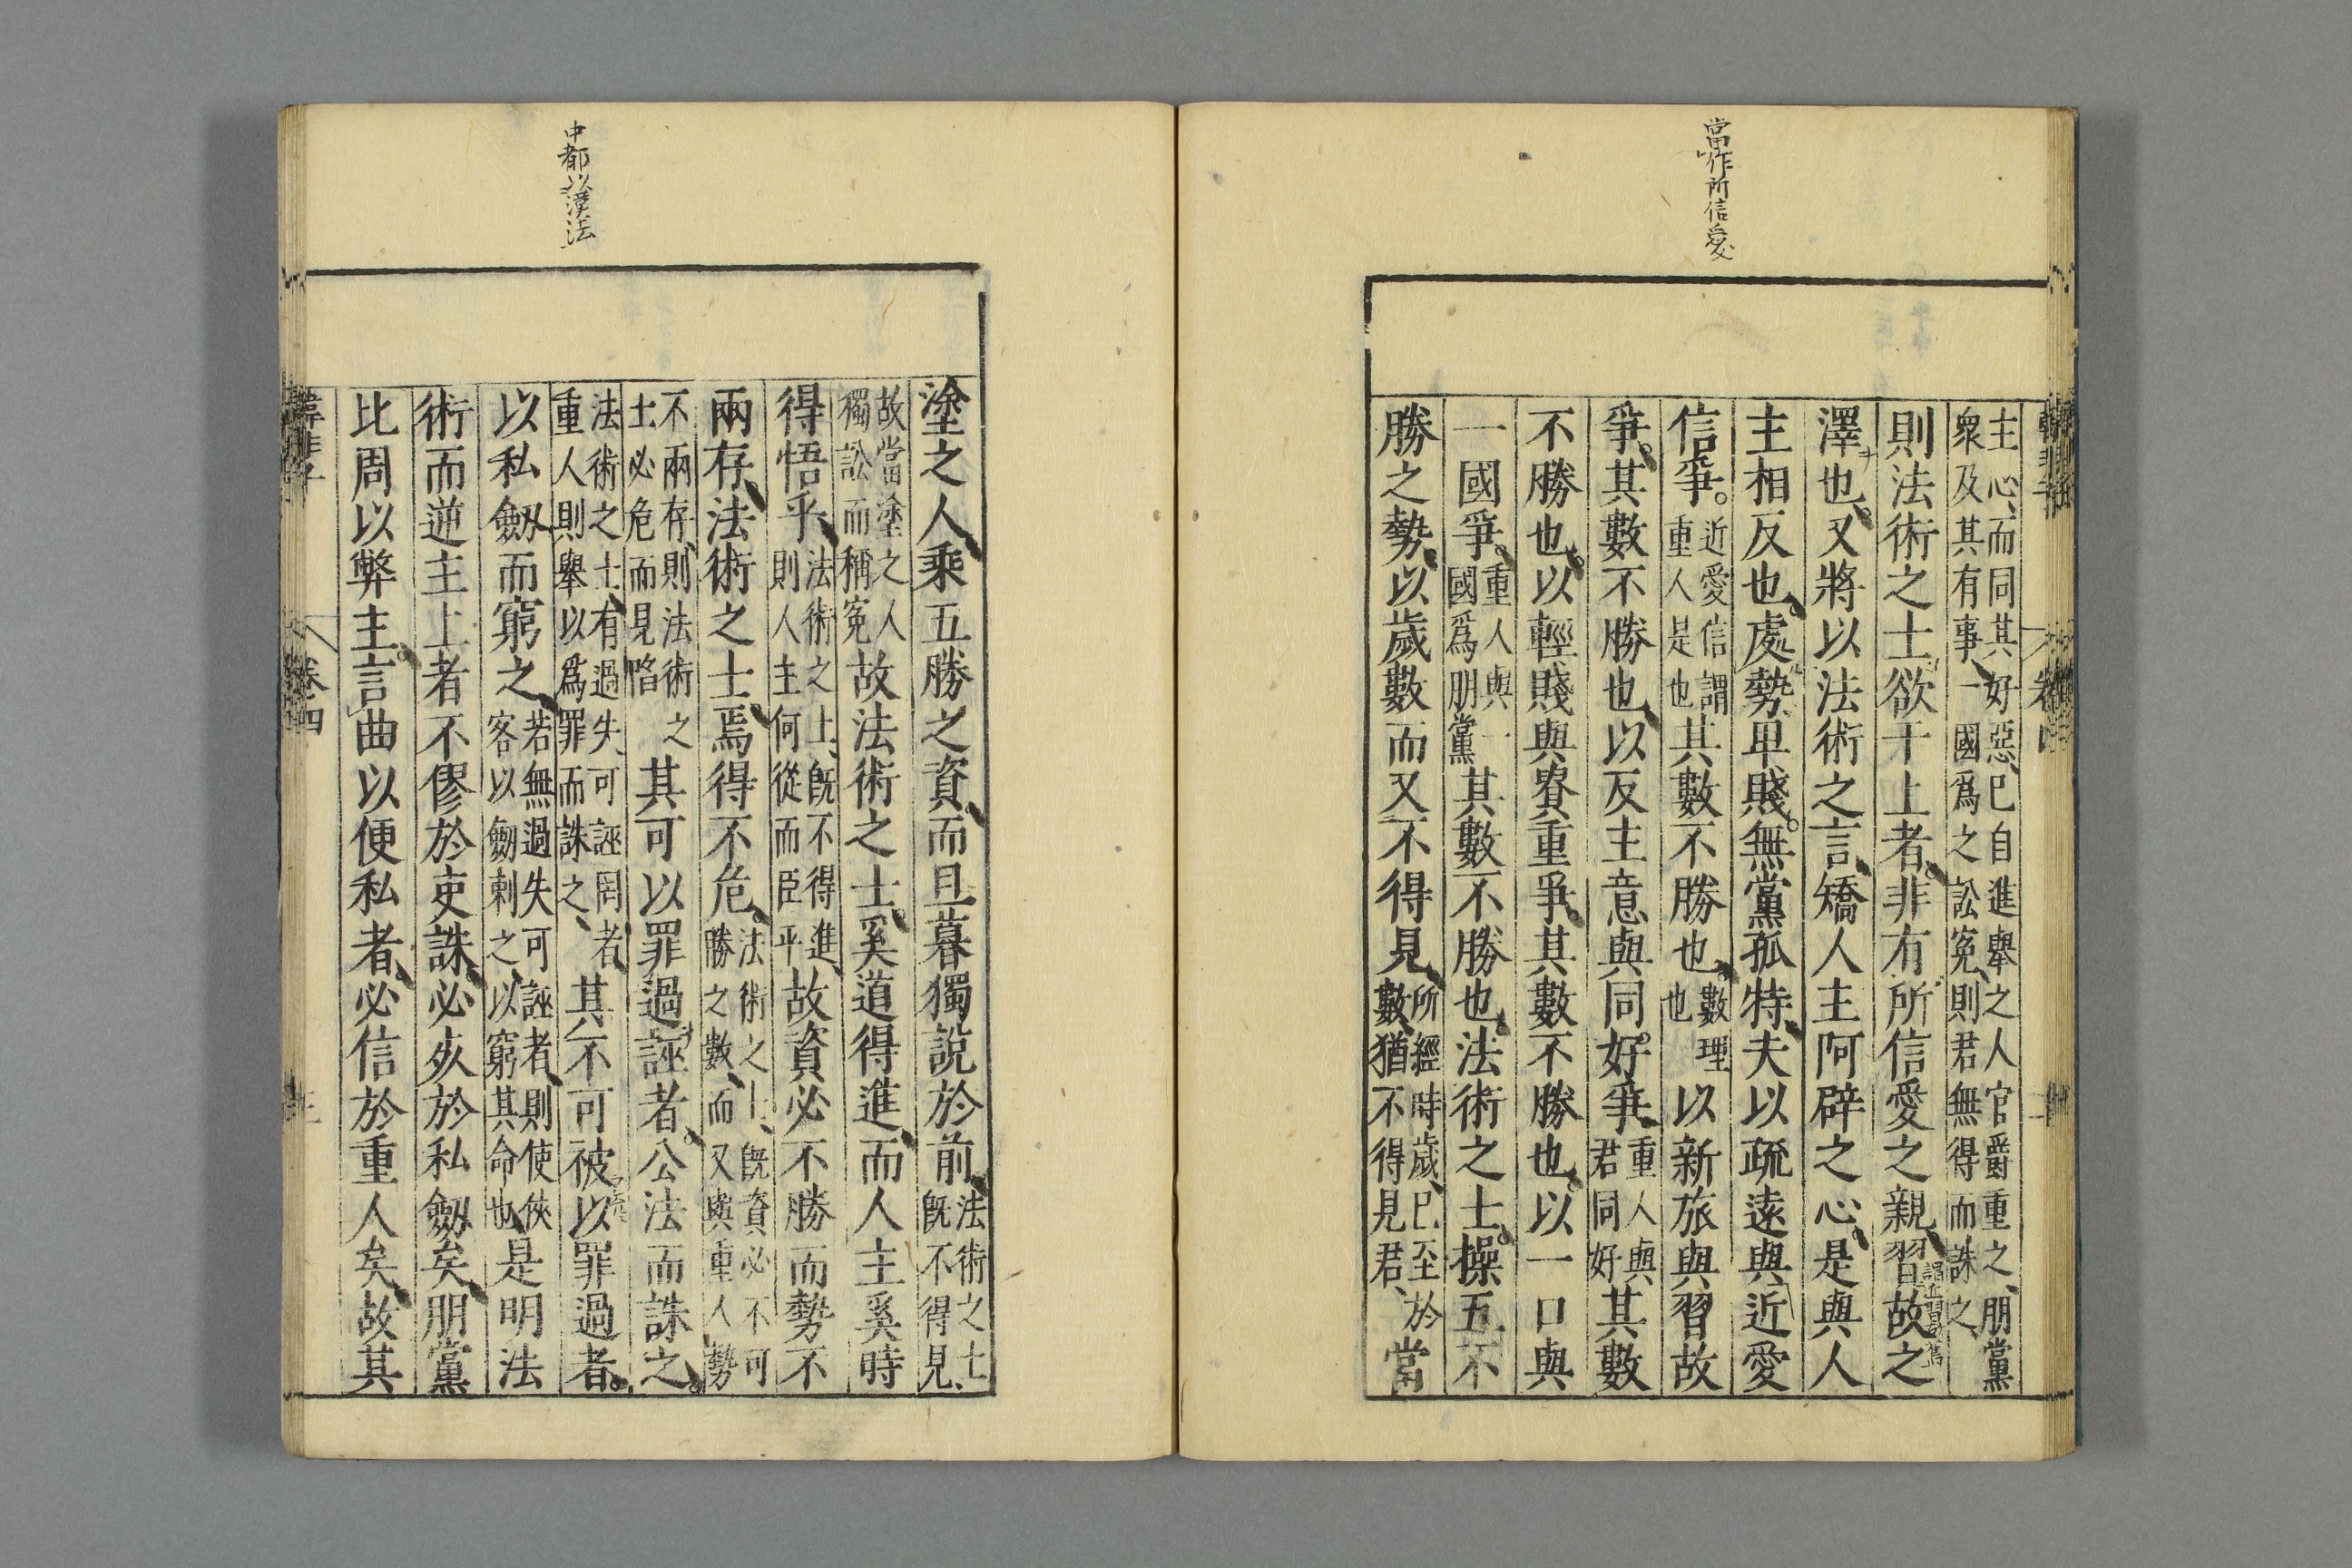 當作所信愛
主心、而同其好惡、巳自進舉之人官爵重之、朋黨
衆及其有事、一國爲之訟寃、則君無得而誅之、
則法術之士欲干上者、非有所信愛之親、習故之
澤也、又將以法術之言、矯人主阿辟之心、是與人
主相反也、處勢卑賤。無黨孤特、夫以疏遠與近愛
信爭。近愛信謂重人是也其數不勝也、數理也以新旅與習故
爭、其數不勝也、以反主意與同好爭、重人與君同好其數
不勝也、以輕賤與貴重爭、其數不勝也、以一口與
一國爭、重人與一國爲朋黨其數不勝也、法術之士。操五不
勝之勢、以歲數而又不得見、所經時歲、巳至於數、猶不得見君、當
韓非子 卷四
中都以漢法
塗之人、乘五勝之資、而旦暮獨說於前、法術之士、既不得見、
故當塗之人獨訟而稱寃故法術之士、奚道得進、而人主奚時
得悟乎、法術之士、既不得進、則人主何從而臣乎故資必不勝而勢不
兩存、法術之士焉得不危、法術之士、既資必不可勝之數、而又與重人勢
不兩存、則法術之士必危而見陷其可以罪過誣者、公法而誅之、
法術之士、有過失、可誣罔者、重人則舉以爲罪而誅之、其不可被以罪過者。
以私劔而窮之、若無過失可誣者、則使俠客以劔刺之、以窮其命也、是明法
術而逆主上者、不僇於吏誅、必死於私劔矣、朋黨
比周以弊主、言曲以便私者、必信於重人矣、故其
韓非子 卷四 三